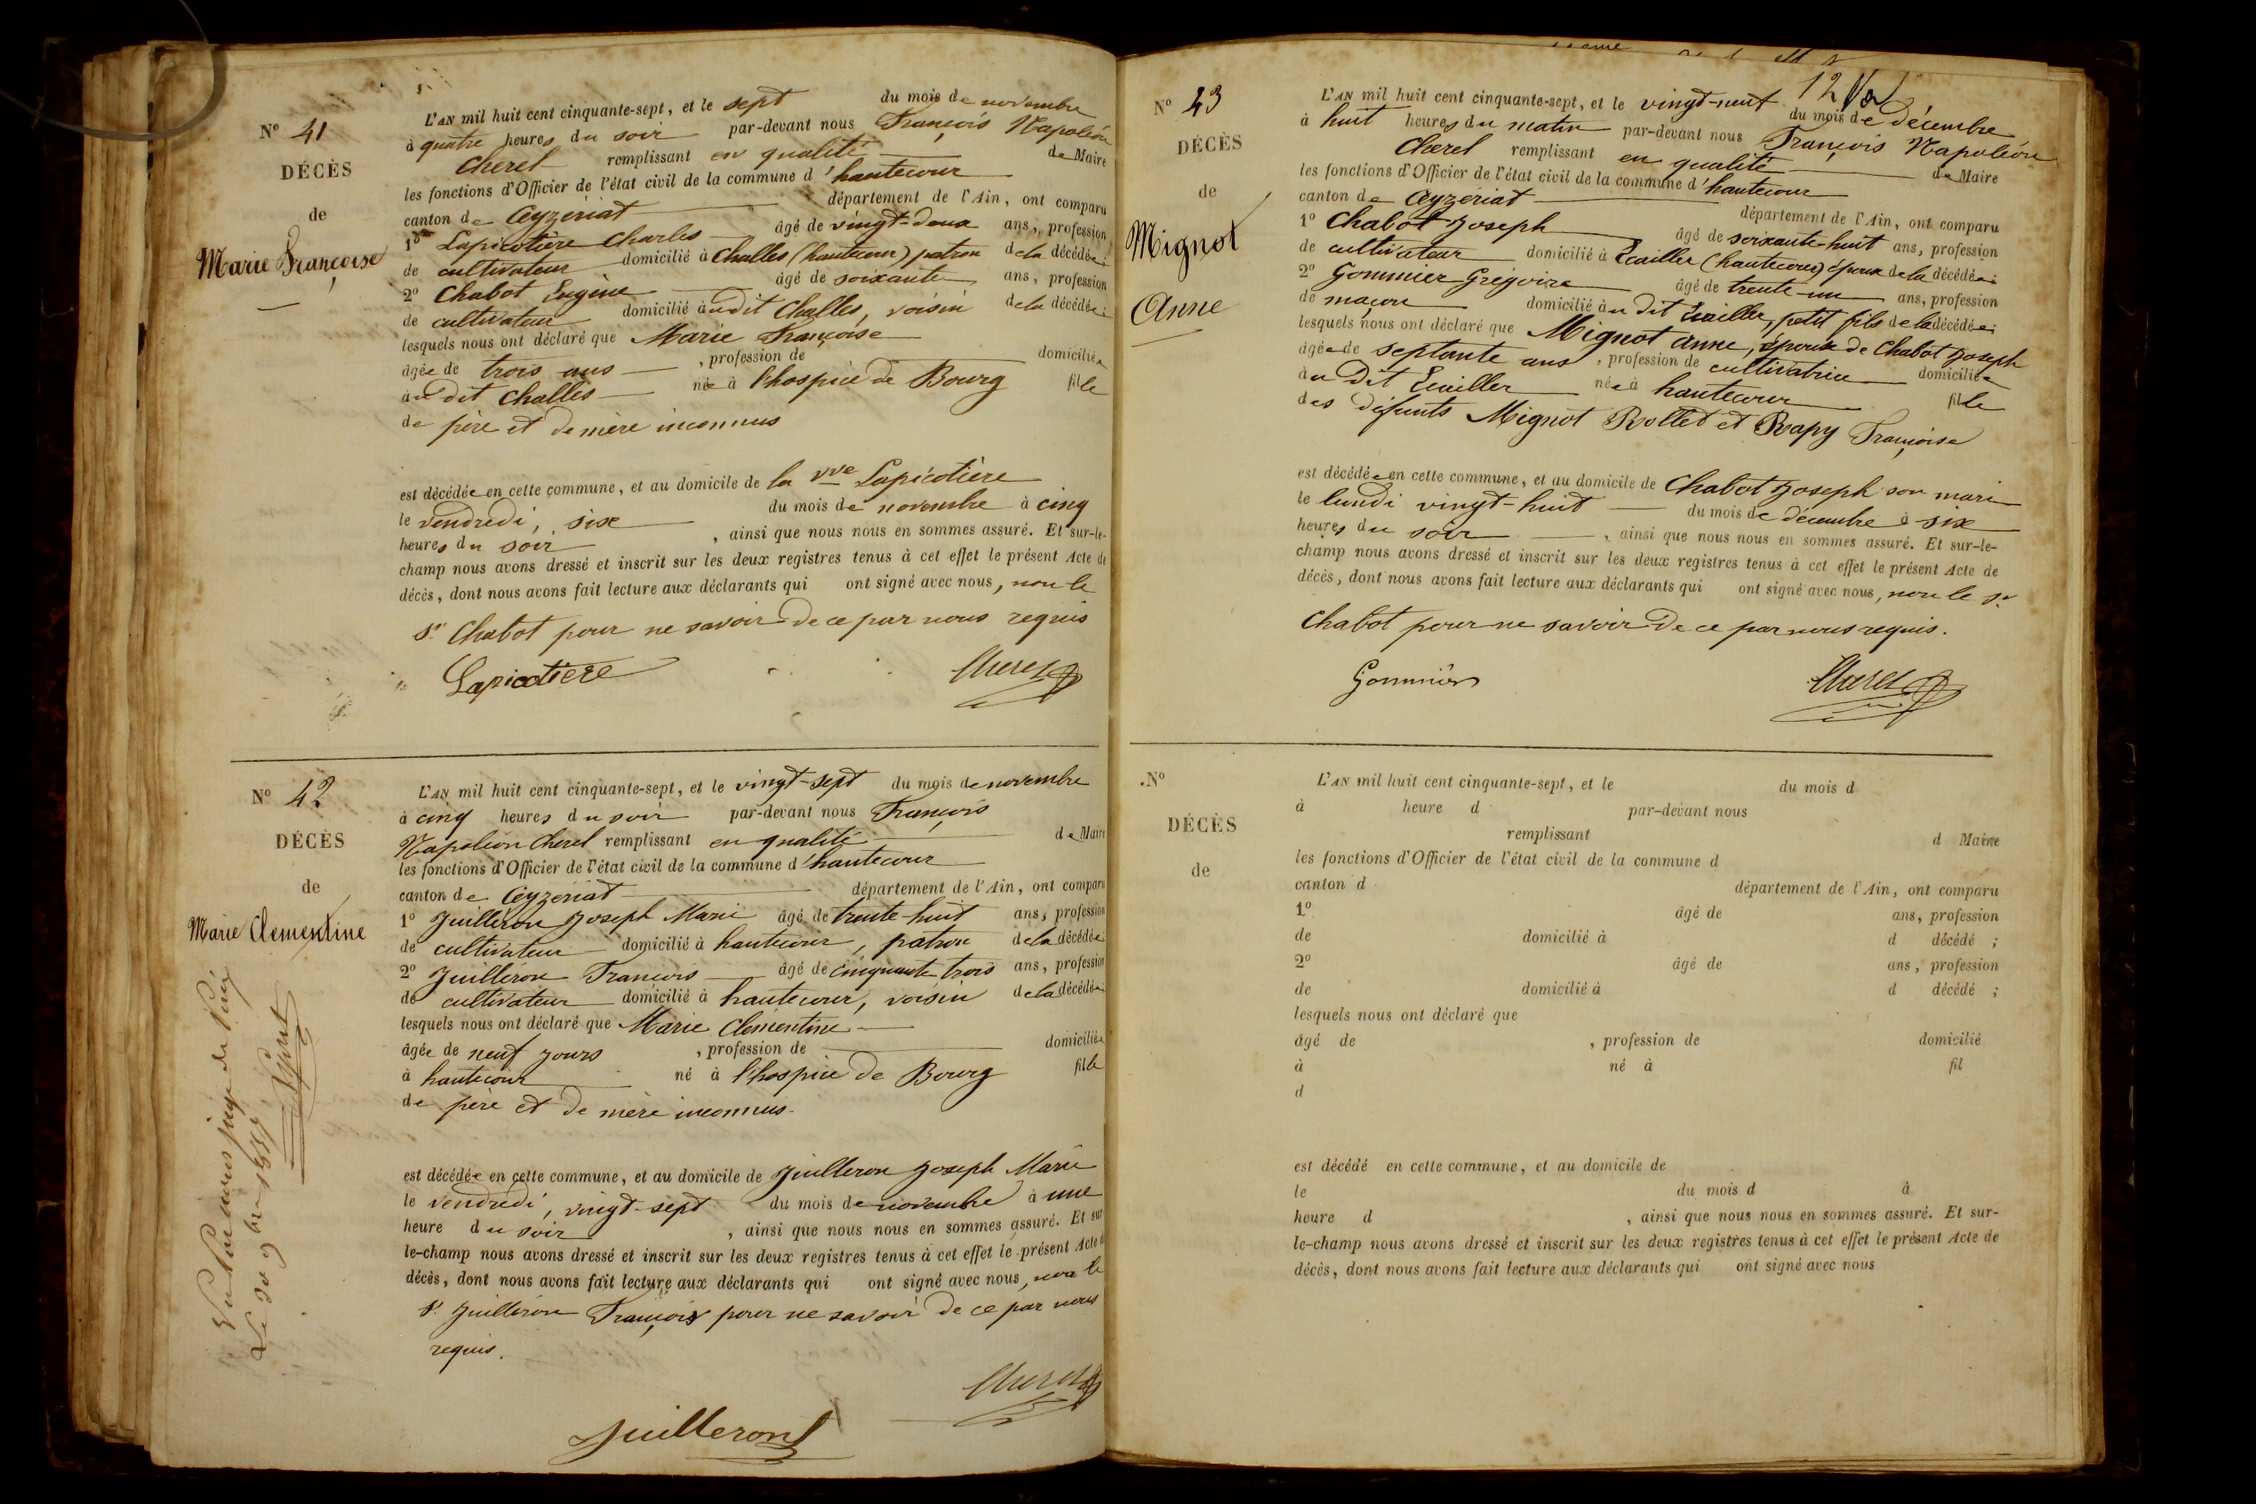 N° 41
DÉCÈS
de
Marie Françoise
L'AN mil huit cent cinquante-sept, et le sept du mois de novembre
à quatre heures du soir par-devant nous François Napoléon
Cherel remplissant en qualité de Maire
les fonctions d'Officier de l'état civil de la commune d'hautecour
canton de Ceyzériat département de l'Ain, ont comparu
1° Lapicotière Charles âgé de vingt-deux ans, profession
de cultivateur domicilié à Challes (hautecour) patron de la décédée;
2° Chabot Eugène âgé de soixante ans, profession
de cultivateur domicilié audit Challes, voisin de la décédée;
lesquels nous ont déclaré que Marie Françoise
âgée de trois ans, profession de domiciliée
au dit Challes née à l'hospice de Bourg fille
de père et de mère inconnus
est décédée en cette commune, et au domicile de la vve Lapicotière
le vendredi, six du mois de novembre à cinq
heures du soir, ainsi que nous nous en sommes assuré. Et sur-le-
champ nous avons dressé et inscrit sur les deux registres tenus à cet effet le présent Acte de
décès, dont nous avons fait lecture aux déclarants qui ont signé avec nous, non le
sr Chabot pour ne savoir de ce par nous requis
Lapicotiere Cherel
N° 42
DÉCÈS
de
Marie Clementine
L'AN mil huit cent cinquante-sept, et le vingt-sept du mois de novembre
à cinq heures du soir par-devant nous François
Napoléon Cherel remplissant en qualité de Maire
les fonctions d'Officier de l'état civil de la commune d'hautecour
canton de Ceyzériat département de l'Ain, ont comparu
1° Juilléron Joseph Marie âgé de trente-huit ans, profession
de cultivateur domicilié à hautecour, patron de la décédée;
2° Juilléron François âgé de cinquante trois ans, profession
de cultivateur domicilié à hautecour, voisin de la décédée;
lesquels nous ont déclaré que Marie Clementine
âgée de neuf jours, profession de domiciliée
à hautecour né à l'hospice de Bourg fille
de père et de mère inconnus.
est décédée en cette commune, et au domicile de Juilleron Joseph Marie
le vendredi, vingt-sept du mois de novembre à une
heure du soir, ainsi que nous nous en sommes assuré. Et sur
le-champ nous avons dressé et inscrit sur les deux registres tenus à cet effet le présent Acte d
décès, dont nous avons fait lecture aux déclarants qui ont signé avec nous, non le
sr Juilléron François pour ne savoir de ce par nous
requis.
Cherel
Juilleron
Vu Par nous juge de Paix
Le 30 9bre 1857
12
N° 43
DÉCÈS
de
Mignot
Anne
L'AN mil huit cent cinquante-sept, et le vingt-neuf du mois de décembre
à huit heures du matin par-devant nous François Napoléon
Cherel remplissant en qualité de Maire
les fonctions d'Officier de l'état civil de la commune d'hautecour
canton de Ceyzériat département de l'Ain, ont comparu
1° Chabot Joseph âgé de soixante-huit ans, profession
de cultivateur domicilié à Ecailler (hautecour) époux de la décédée;
2° Gommier Grégoire âgé de trente-un ans, profession
de maçon domicilié au dit Ecailler, petit fils de la décédée;
lesquels nous ont déclaré que Mignot anne, épouse de Chabot Joseph
âgée de septante ans, profession de cultivatrice domiciliée
au dit Ecailler née à hautecour fille
des défunts Mignot Rollet et Rapy Françoise
est décédée en cette commune, et au domicile de Chabot Joseph son mari
le lundi vingt-huit du mois de décembre à six
heures du soir, ainsi que nous nous en sommes assuré. Et sur-le-
champ nous avons dressé et inscrit sur les deux registres tenus à cet effet le présent Acte de
décès, dont nous avons fait lecture aux déclarants qui ont signé avec nous, non le sr
Chabot pour ne savoir de ce par nous requis.
Gommier Cherel
N°
DÉCÈS
de
L'AN mil huit cent cinquante-sept, et le du mois d
à heure d par-devant nous
remplissant d Maire
les fonctions d'Officier de l'état civil de la commune d
canton d département de l'Ain, ont comparu
1° âgé de ans, profession
de domicilié à d décédé ;
2° âgé de ans, profession
de domicilié à d décédé ;
lesquels nous ont déclaré que
âgé de , profession de domicilié
à né à fil
d
est décédé en cette commune, et au domicile de
le du mois d à
heure d , ainsi que nous nous en sommes assuré. Et sur-
le-champ nous avons dressé et inscrit sur les deux registres tenus à cet effet le présent Acte de
décès, dont nous avons fait lecture aux déclarants qui ont signé avec nous